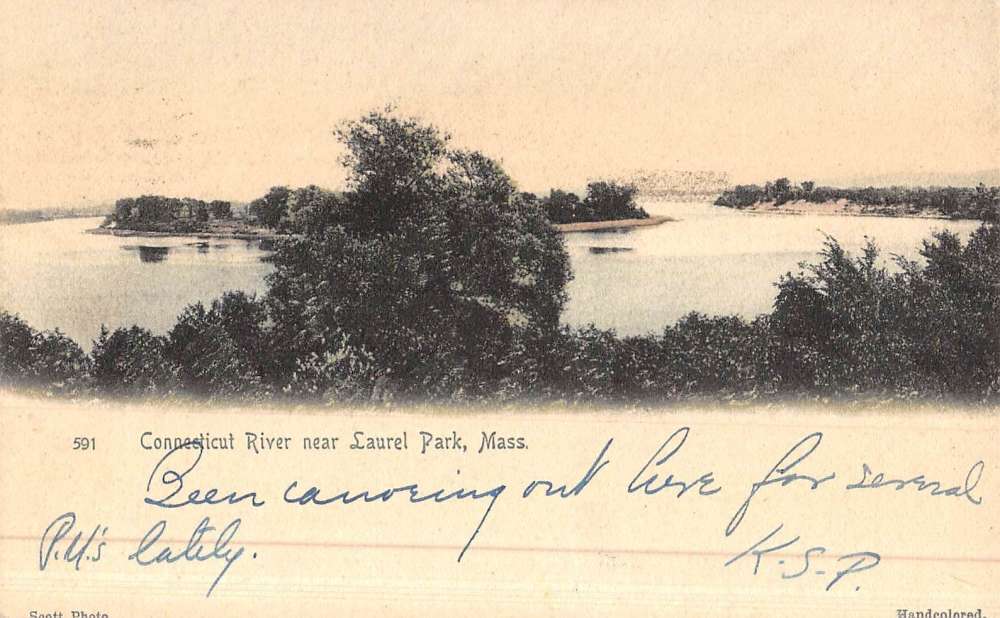 591 Connecticut River near Laurel Park, Mass.
Been canoeing out here for several
P.M's lately.
K-S-P.
Scott Photo Handcolored.